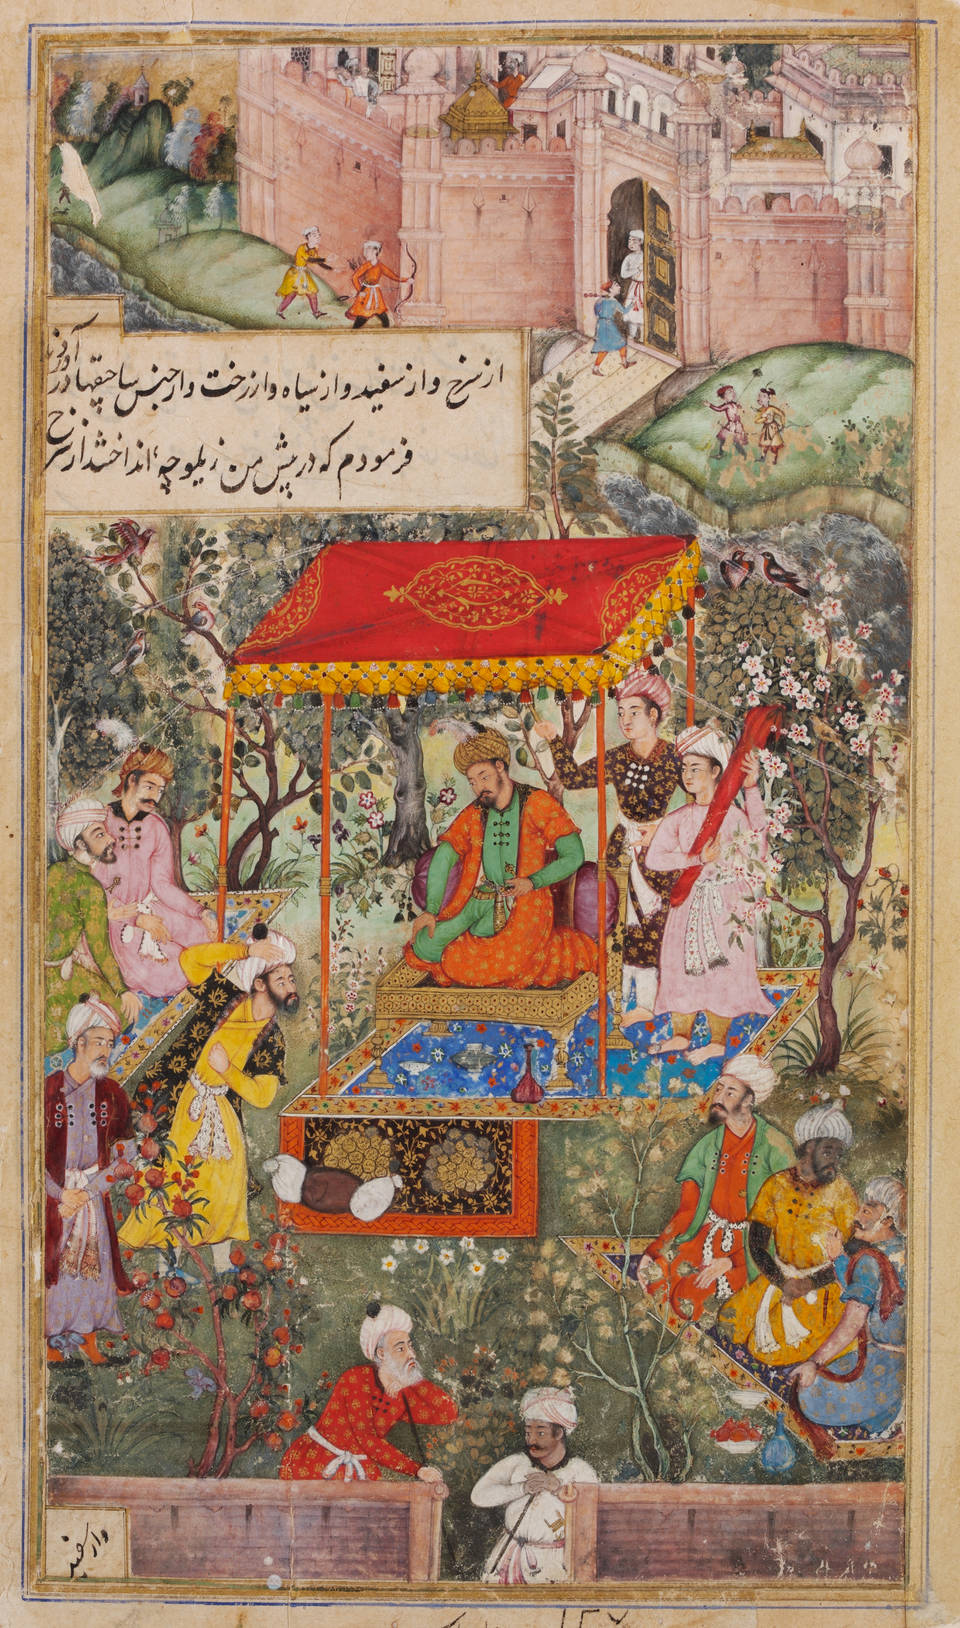 از سرخ و از سفید و از سیاه و از رخت و از جنس ساچقها در آوردند
فرمودم که در پیش من زیلوچه انداختند از سرخ
و از سفید